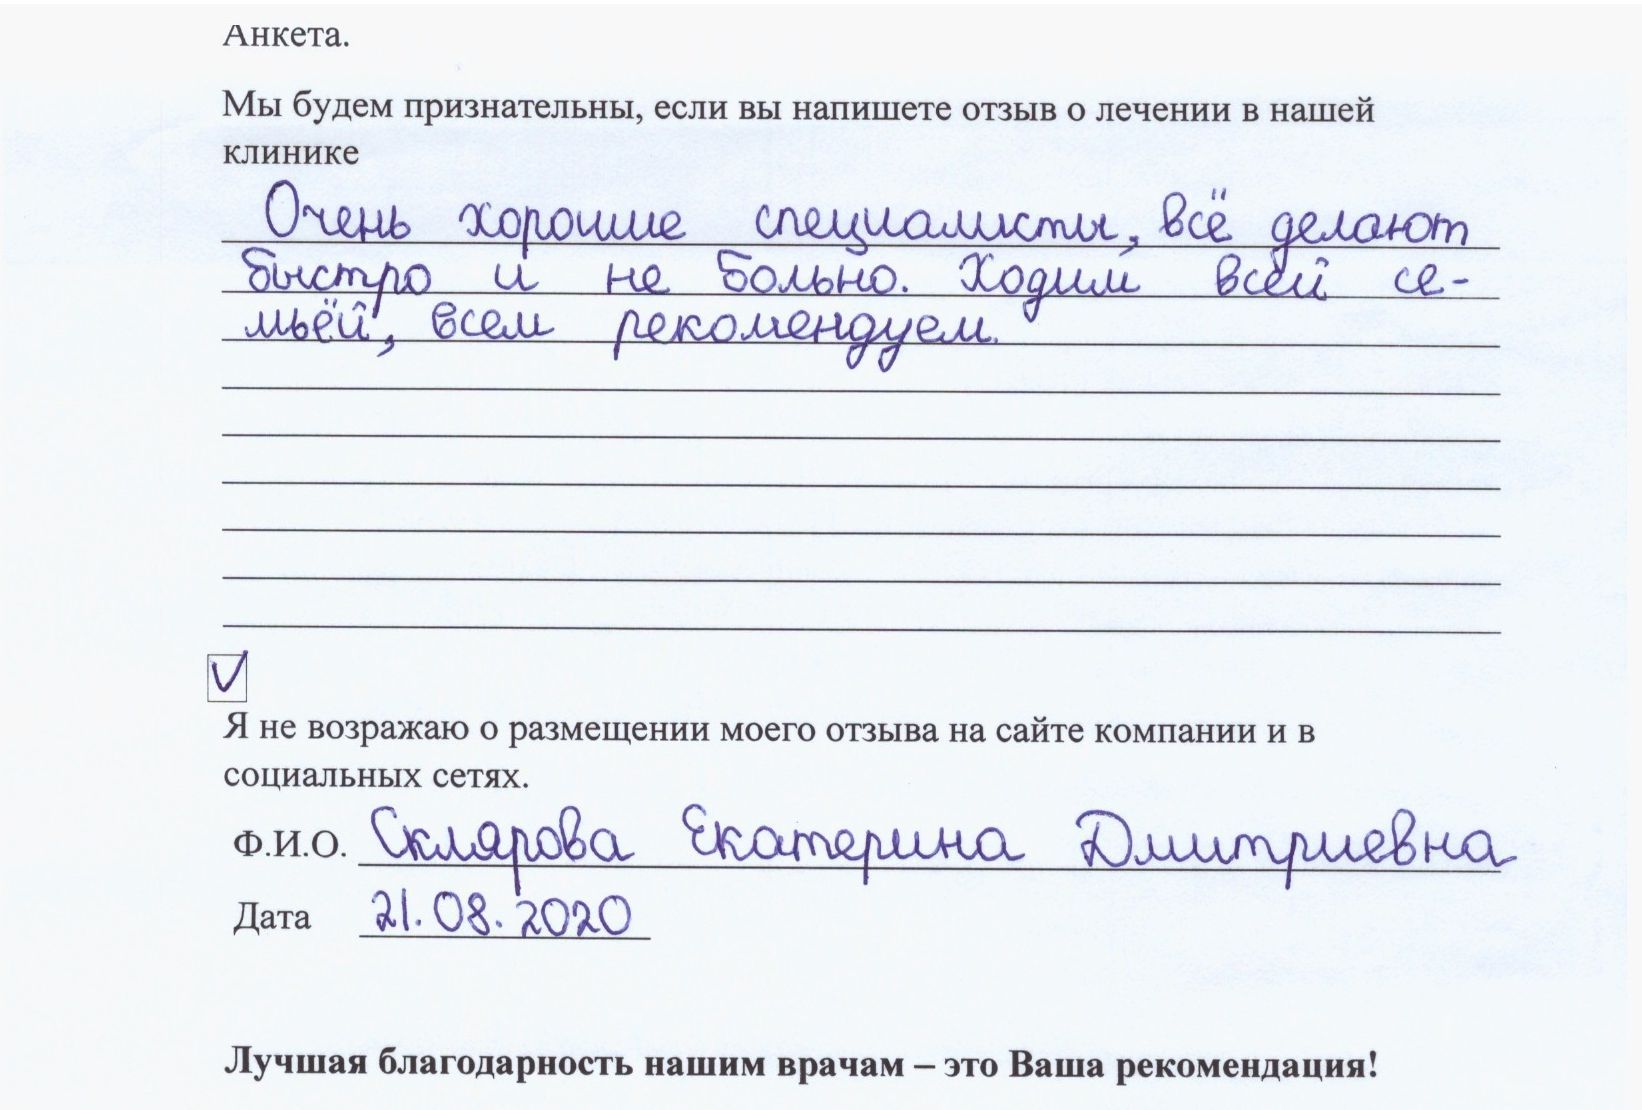 Анкета.
Мы будем признательны, если вы напишете отзыв о лечении в нашей
клинике
Очень хорошие специалисты, всё делают
быстро и не больно. Ходим всей се-
мьёй, всем рекомендуем.
Я не возражаю о размещении моего отзыва на сайте компании и в
социальных сетях.
Ф.И.О. Склярова Екатерина Дмитриевна
Дата 21.08.2020
Лучшая благодарность нашим врачам – это Ваша рекомендация!